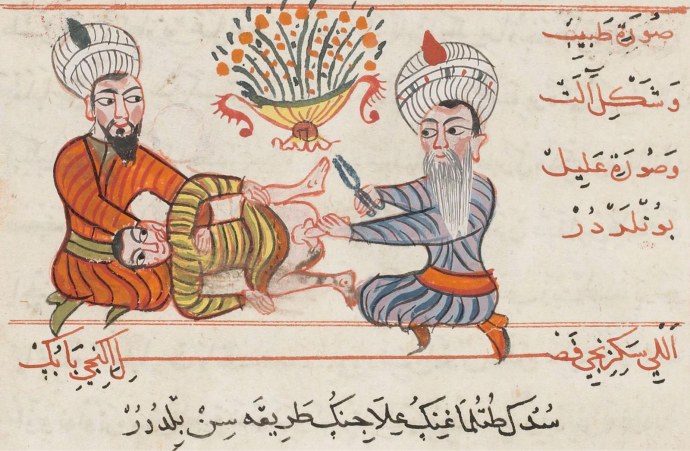 صُورَةِ طَبِيبْ
وَشَكْلِ اٰلَتْ
وَصُورَةِ عَلِيلْ
بُونْلَرْدُرْ
اَللِّي سَكِزِنْجِي فَصْلِ اِكِنْجِي بَابُكْ
سُدُكْ طُتُلْمَاغِنِكْ عِلَاجِنِكْ طَرِيقَه سِنْ بِلْدُرُرْ